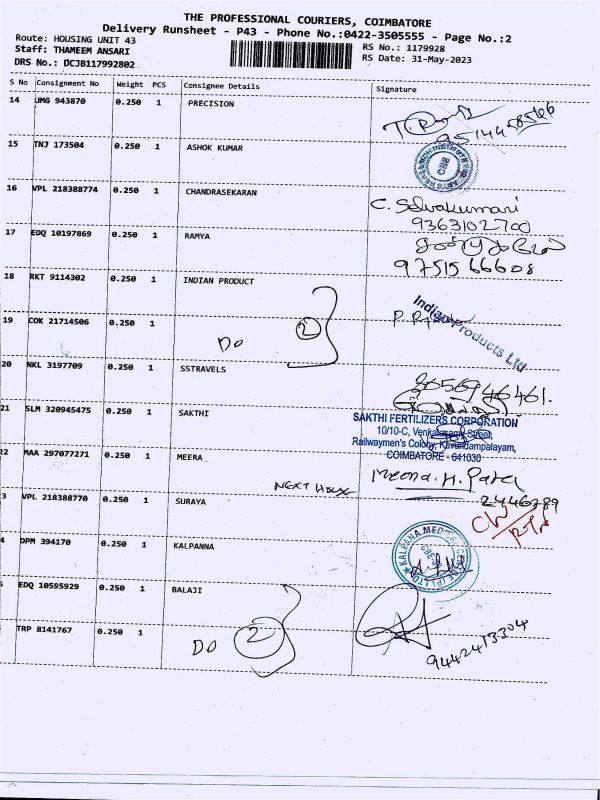 THE PROFESSIONAL COURIERS, COIMBATORE
Delivery Runsheet - P43 - Phone No.:0422-3505555 - Page No.:2
Route: HOUSING UNIT 43
RS No.: 1179928
Staff: THAMEEM ANSARI
RS Date: 31-May-2023
DRS No.: DCJB117992802
S No Consignment No Weight PCS Consignee Details Signature
14 UMG 943870 0.250 1 PRECISION
15 TNJ 173504 0.250 1 ASHOK KUMAR
CBE
16 VPL 218388774 0.250 1 CHANDRASEKARAN
C. Selvakumari
9363102700
17 EDQ 10197869 0.250 1 RAMYA
9751566608
18 RKT 9114302 0.250 1 INDIAN PRODUCT
Indian Products Ltd
19 COK 21714506 0.250 1
DO 2
20 NKL 3197709 0.250 1 SSTRAVELS
21 SLM 320945475 0.250 1 SAKTHI
SAKTHI FERTILIZERS CORPORATION
10/10-C, Venkatasamy Street,
Railwaymen's Colony, Kavundampalayam,
COIMBATORE - 641030
22 MAA 297077271 0.250 1 MEERA
Meena. H. Patel
NEXT HOUSE
2446789
3 VPL 218388770 0.250 1 SURAYA
4 DPM 394170 0.250 1 KALPANNA
KALPANA MEDI
CBE
EDQ 10595929 0.250 1 BALAJI
TRP 8141767 0.250 1
DO 2
9442413304